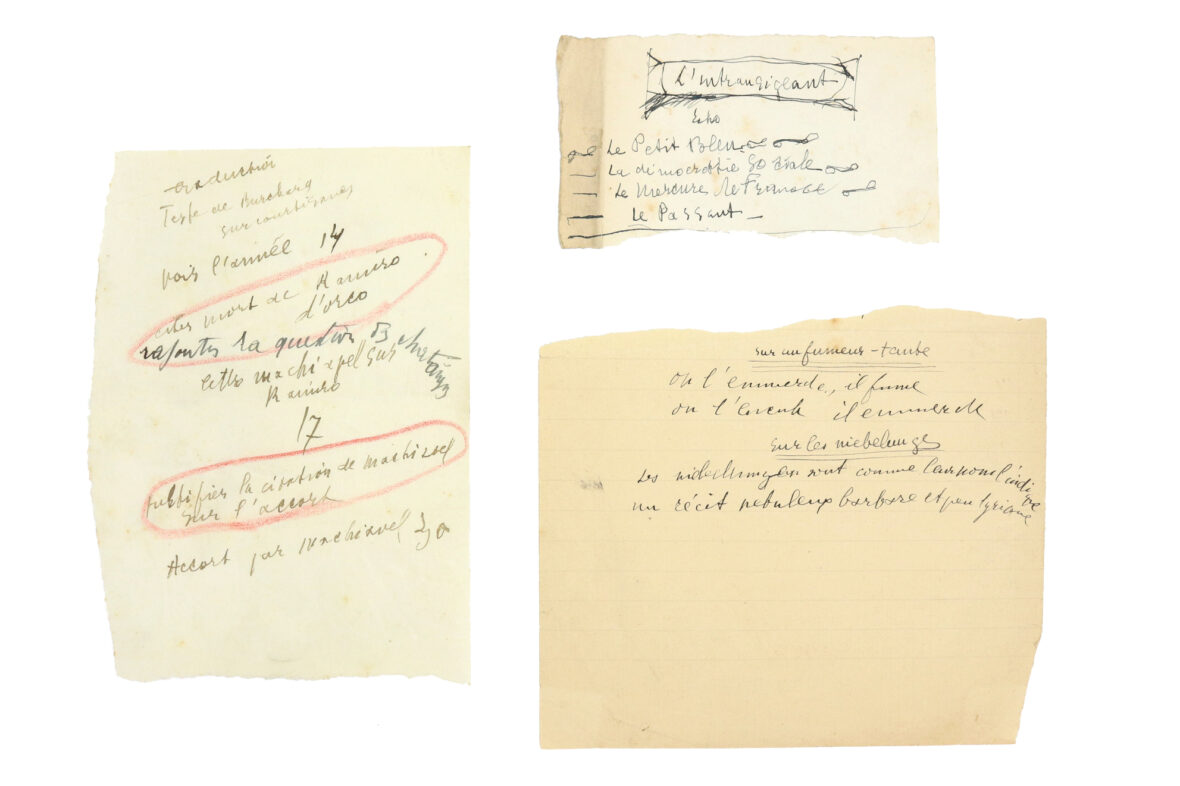 traduction
Texte de Burchard
sur courtisanes
voir l'année 14
citer mort de Ramiro
d'orco
rajouter la question 
lettre machiavel sur
Ramiro
17
justifier la citation de machiavel
sur l'accort
Accort par machiavel
L'intransigeant
Echo
Le Petit Bleu
La démocratie Sociale
Le Mercure de France
Le Passant
sur un fumeur-tante
on l'emmerde, il fume
on l'encule il emmerde
sur les niebelunges
Les niebelungen sont comme l'indique
un récit nebuleux barbare et peu lyrique